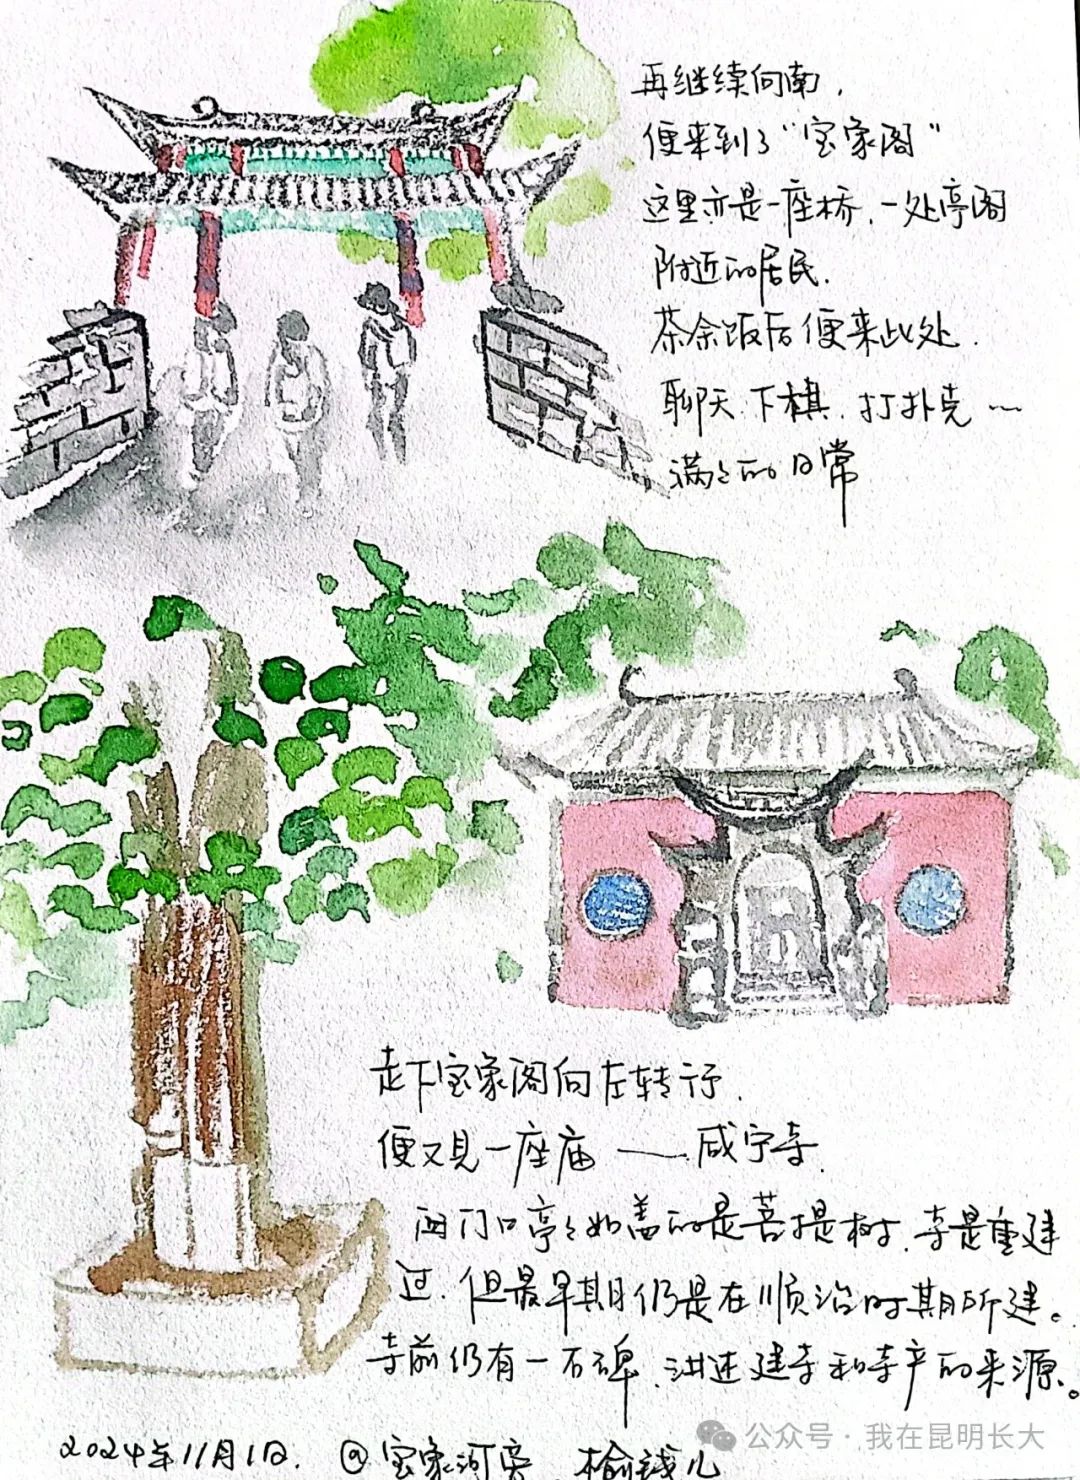 再继续向南，
便来到了“宝象阁”
这里亦是一座桥，一处亭阁
附近的居民，
茶余饭后便来此处，
聊天、下棋、打扑克……
满满的日常
走下宝象阁向左转行，
便又见一座庙——咸宁寺，
而门口亭亭如盖的是菩提树，寺是重建
过，但最早期仍是在顺治时期所建。
寺前仍有一石碑，讲述建寺和寺产的来源。
2024年11月1日. @宝象河旁 榆钱儿
公众号·我在昆明长大